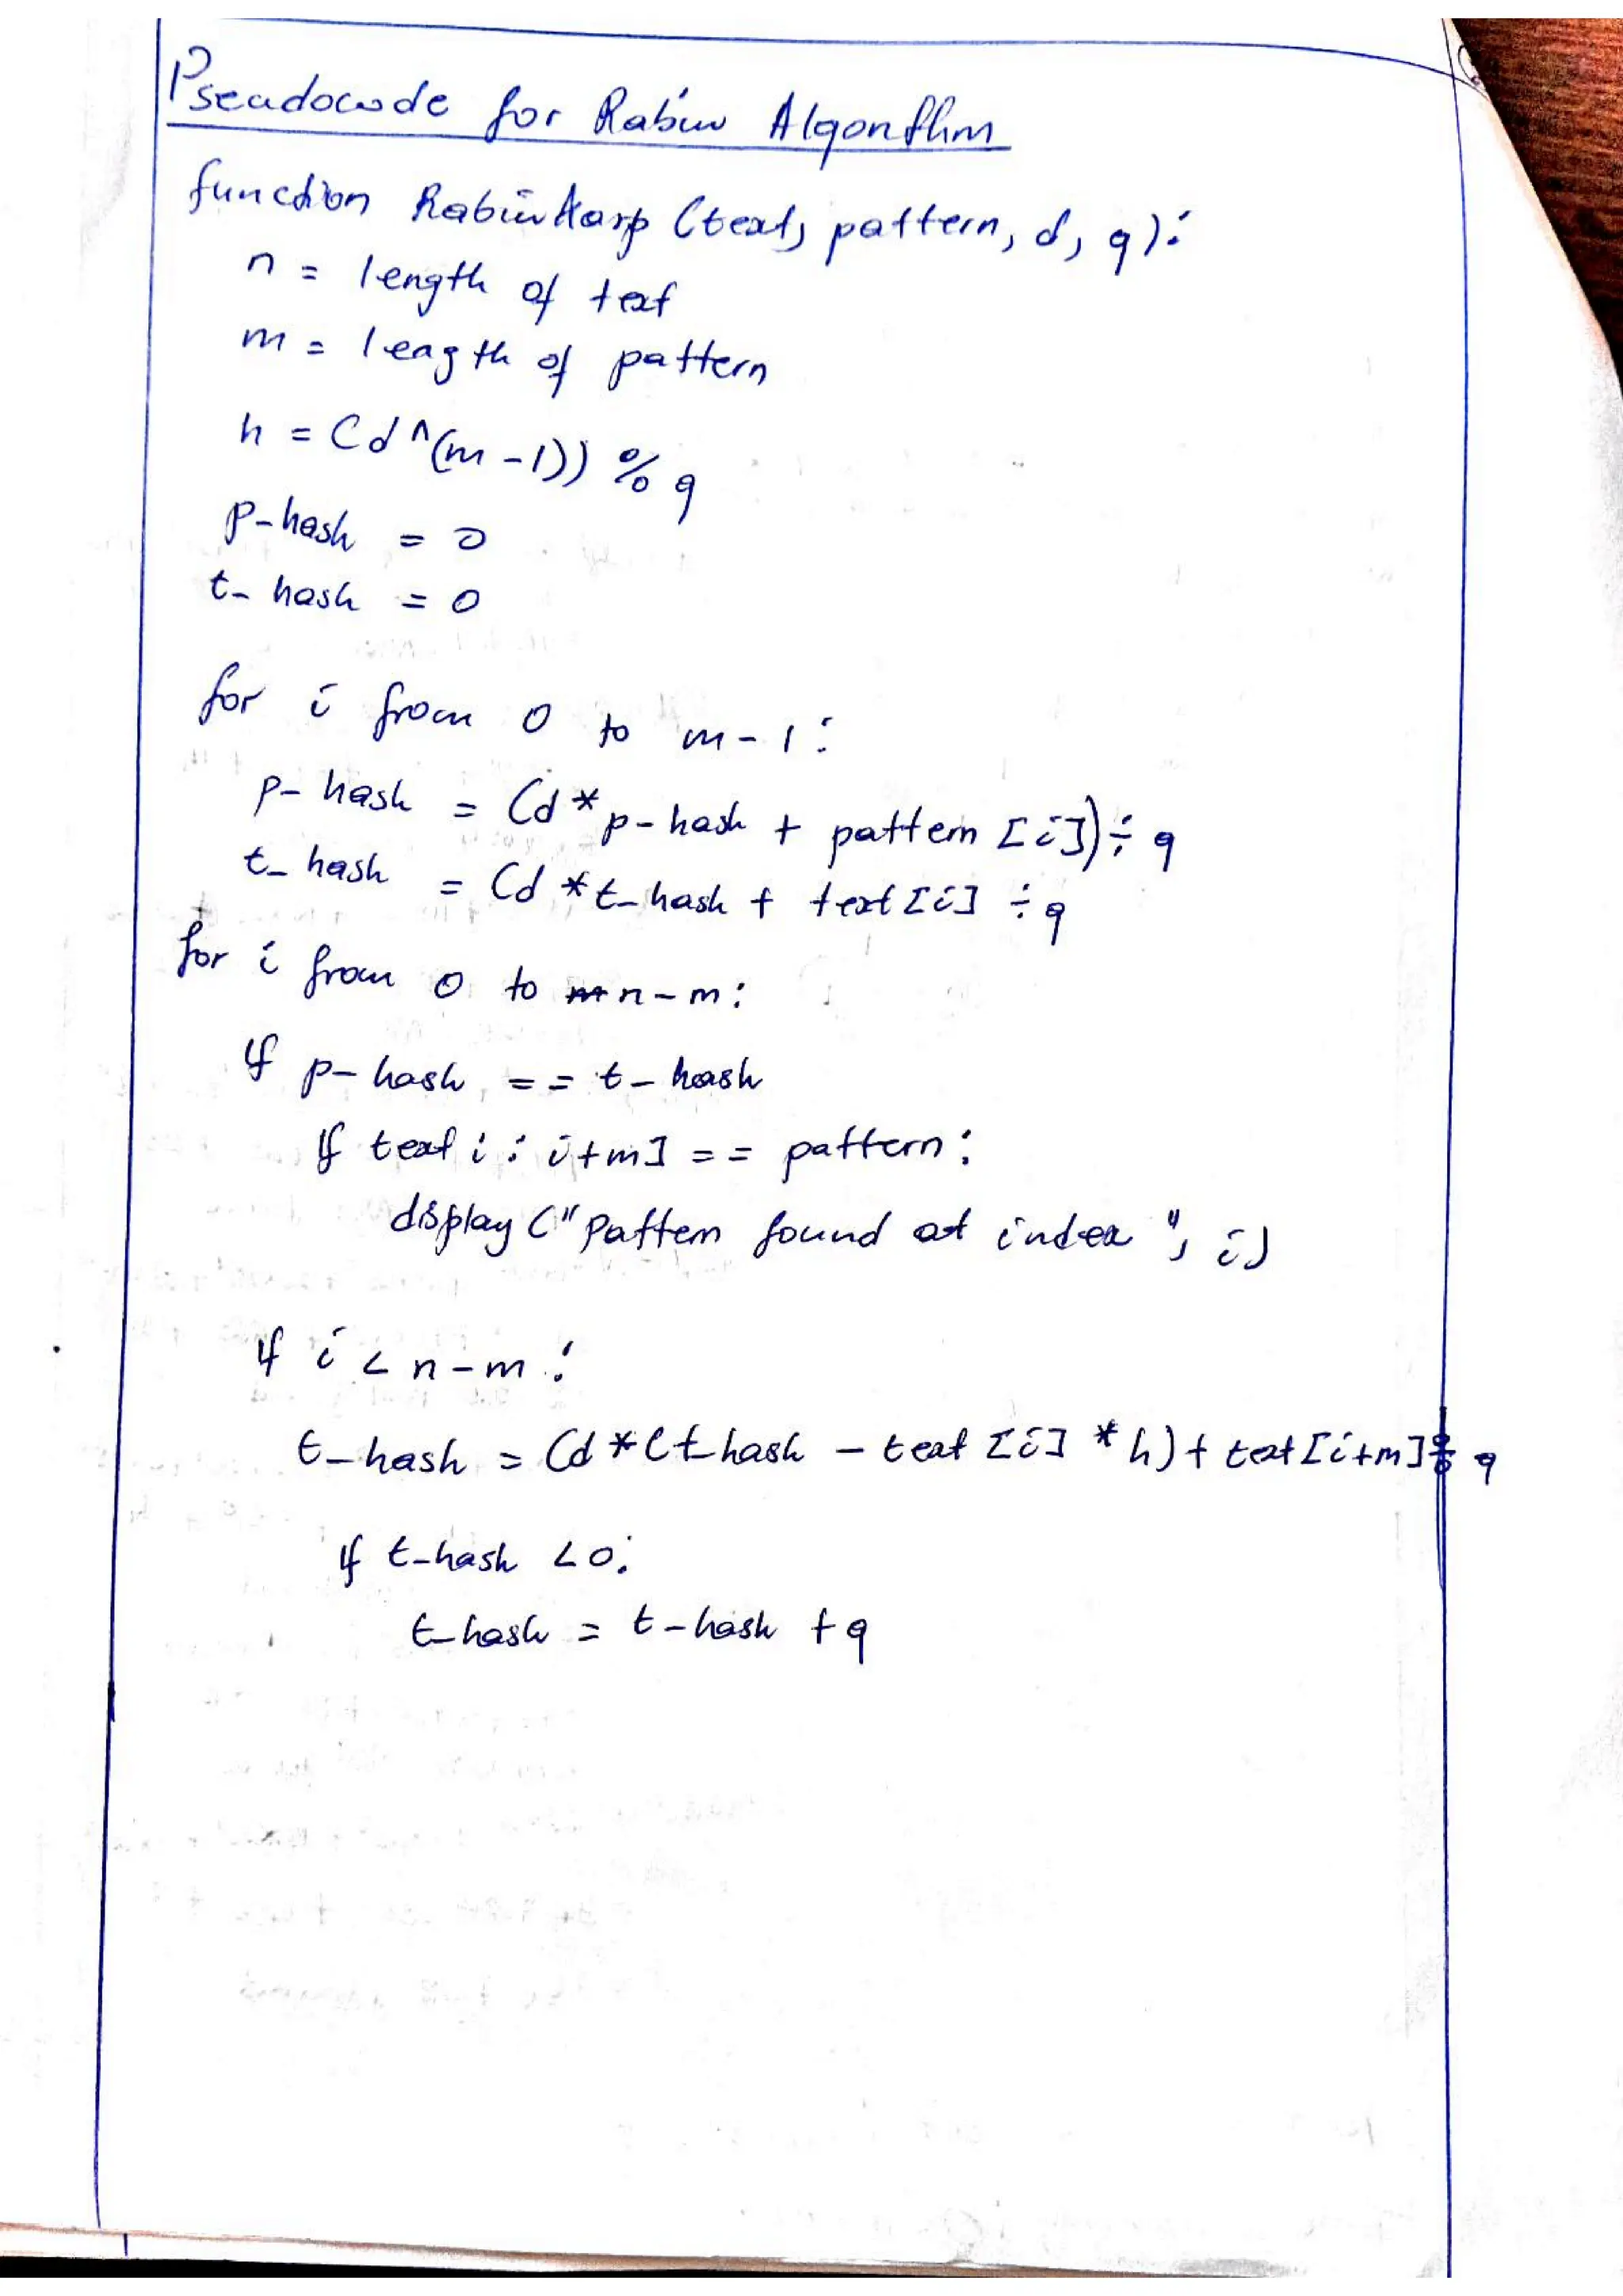 Pseudocode for Rabin Algorithm
function RabinKarp (text, pattern, d, q):
n = length of text
m = length of pattern
h = (d ^ (m - 1)) % q
p-hash = 0
t-hash = 0
for i from 0 to m - 1 :
p-hash = (d * p-hash + pattern [i]) ÷ q
t-hash = (d * t-hash + text [i] ÷ q
for i from 0 to n - m :
If p-hash == t-hash
If text i : i+m] == pattern :
display ("Pattern found at index", i)
If i < n - m :
t-hash = (d * (t-hash - text [i] * h) + text [i+m] % q
if t-hash < 0:
t-hash = t-hash + q